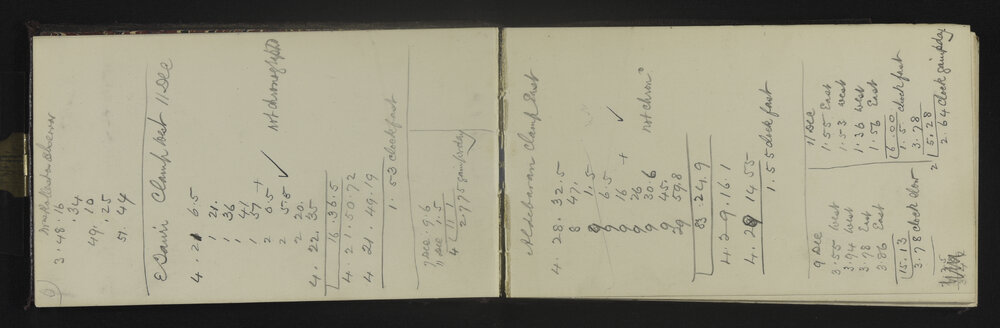 3 . 48 . 16
. 34
49 . 10
. 25
51 . 44
E Tauri Clamp West 11 Dec
4 . 21 6.5
1 21.
1 36
1 41
1 57 +
2 6.5
2 5.5 ✓ not chronographed
2 20.
4 . 22 . 35
16 . 36.5
4 . 21 . 50.72
4 21 . 49 . 19
1 . 53 clock fast
7 Dec . 9.6
11 Dec 1.5
4 11
2.775 gain p day
Aldebaran Clamp East
4 . 28 . 32.5
8 47.
9 1.5
9 6.5 ✓
9 16 +
9 26
9 30.6 not chron°
9 45.
29 59.8
83 24.9
4 . 29 . 16.1
4 . 29 14 55
1.5 clock fast
9 Dec
3.55 West
3.94 West
3.78 East
3.86 East
15.13
3.78 clock slow
11 Dec
1.55 East
1.53 West
1.36 West
1.56 East
6.00
1.5 clock fast
3.78
2 5.28
2.64 clock gain p day